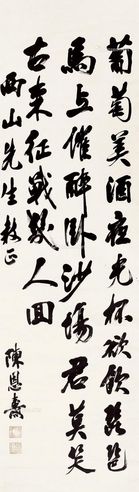 葡萄美酒夜光杯欲飲琵琶
馬上催醉卧沙場君莫笑
古来征戰幾人回
西山先生教正
陳恩燾